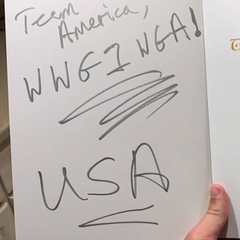 Team
America,
WWG1WGA!
USA